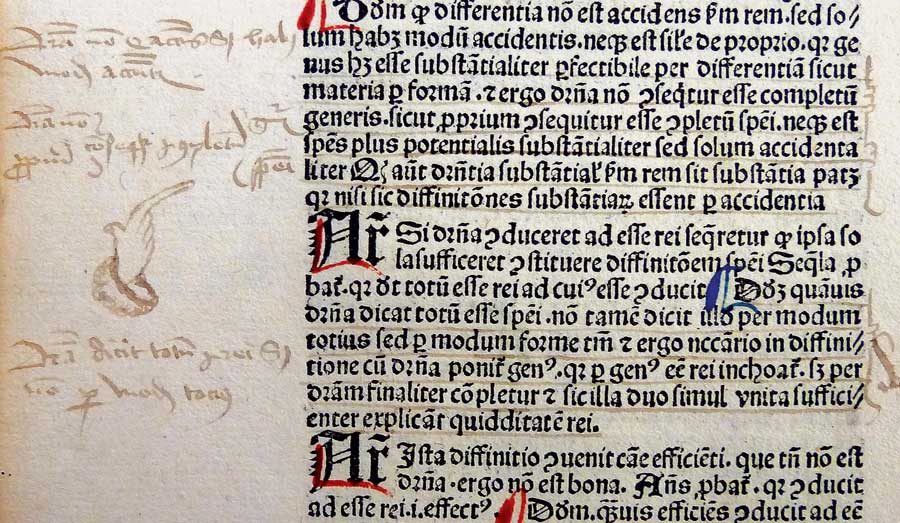 Dōm ꝙ differentia nō est accidens ẜm rem. sed so⸗
lum habꝫ modū accidentis. neqꝫ est sil'e de proprio. qꝛ ge
nus hꝫ esse substātialiter ꝑfectibile per differentiā sicut
materia ꝑ formā. ⁊ ergo dr̄na nō ꝯseq̄tur esse completū
generis. sicut ꝓprium ꝯsequitur esse ꝯpletū spēi. neqꝫ est
spēs plus potentialis substātialiter sed solum accidenta
liter Qꝫ aūt dr̄ntia substātial' ẜm rem sit substātia patꝫ
qꝛ nisi sic diffinitōnes substātiaꝝ essent ꝑ accidentia
Ar̄ Si dr̄na ꝯduceret ad esse rei seq̄retur ꝙ ipsa so
la sufficeret ꝯstituere diffinitōem spēi Seq̄la ꝓ
bat̄. qꝛ dt̄ totū esse rei ad cui⁹ esse ꝯducit Dōꝫ quāuis
dr̄na dicat totū esse spēi. nō tamē dicit illō per modum
totius sed ꝑ modum forme tm̄ ⁊ ergo nccārio in diffini⸗
tione cū dr̄na ponit̄ gen⁹. qꝛ ꝑ gen⁹ eē rei inchoat̄. sꝫ per
dr̄am finaliter cōpletur ⁊ sic illa duo simul vnita suffici⸗
enter explicāt quidditatē rei.
Ar̄ Ista diffinitio ꝯuenit cāe efficiēti. que tn̄ nō est
dr̄na. ergo nō est bona. Añs ꝓbat̄. qꝛ ꝯducit
ad esse rei .i. effect⁹. Dōm. qꝫuis efficiēs ꝯducit ad eē
Dr̄a nō
Dr̄a nō
spēi
Dr̄a dicit totū rei
nō ꝑ modū totius